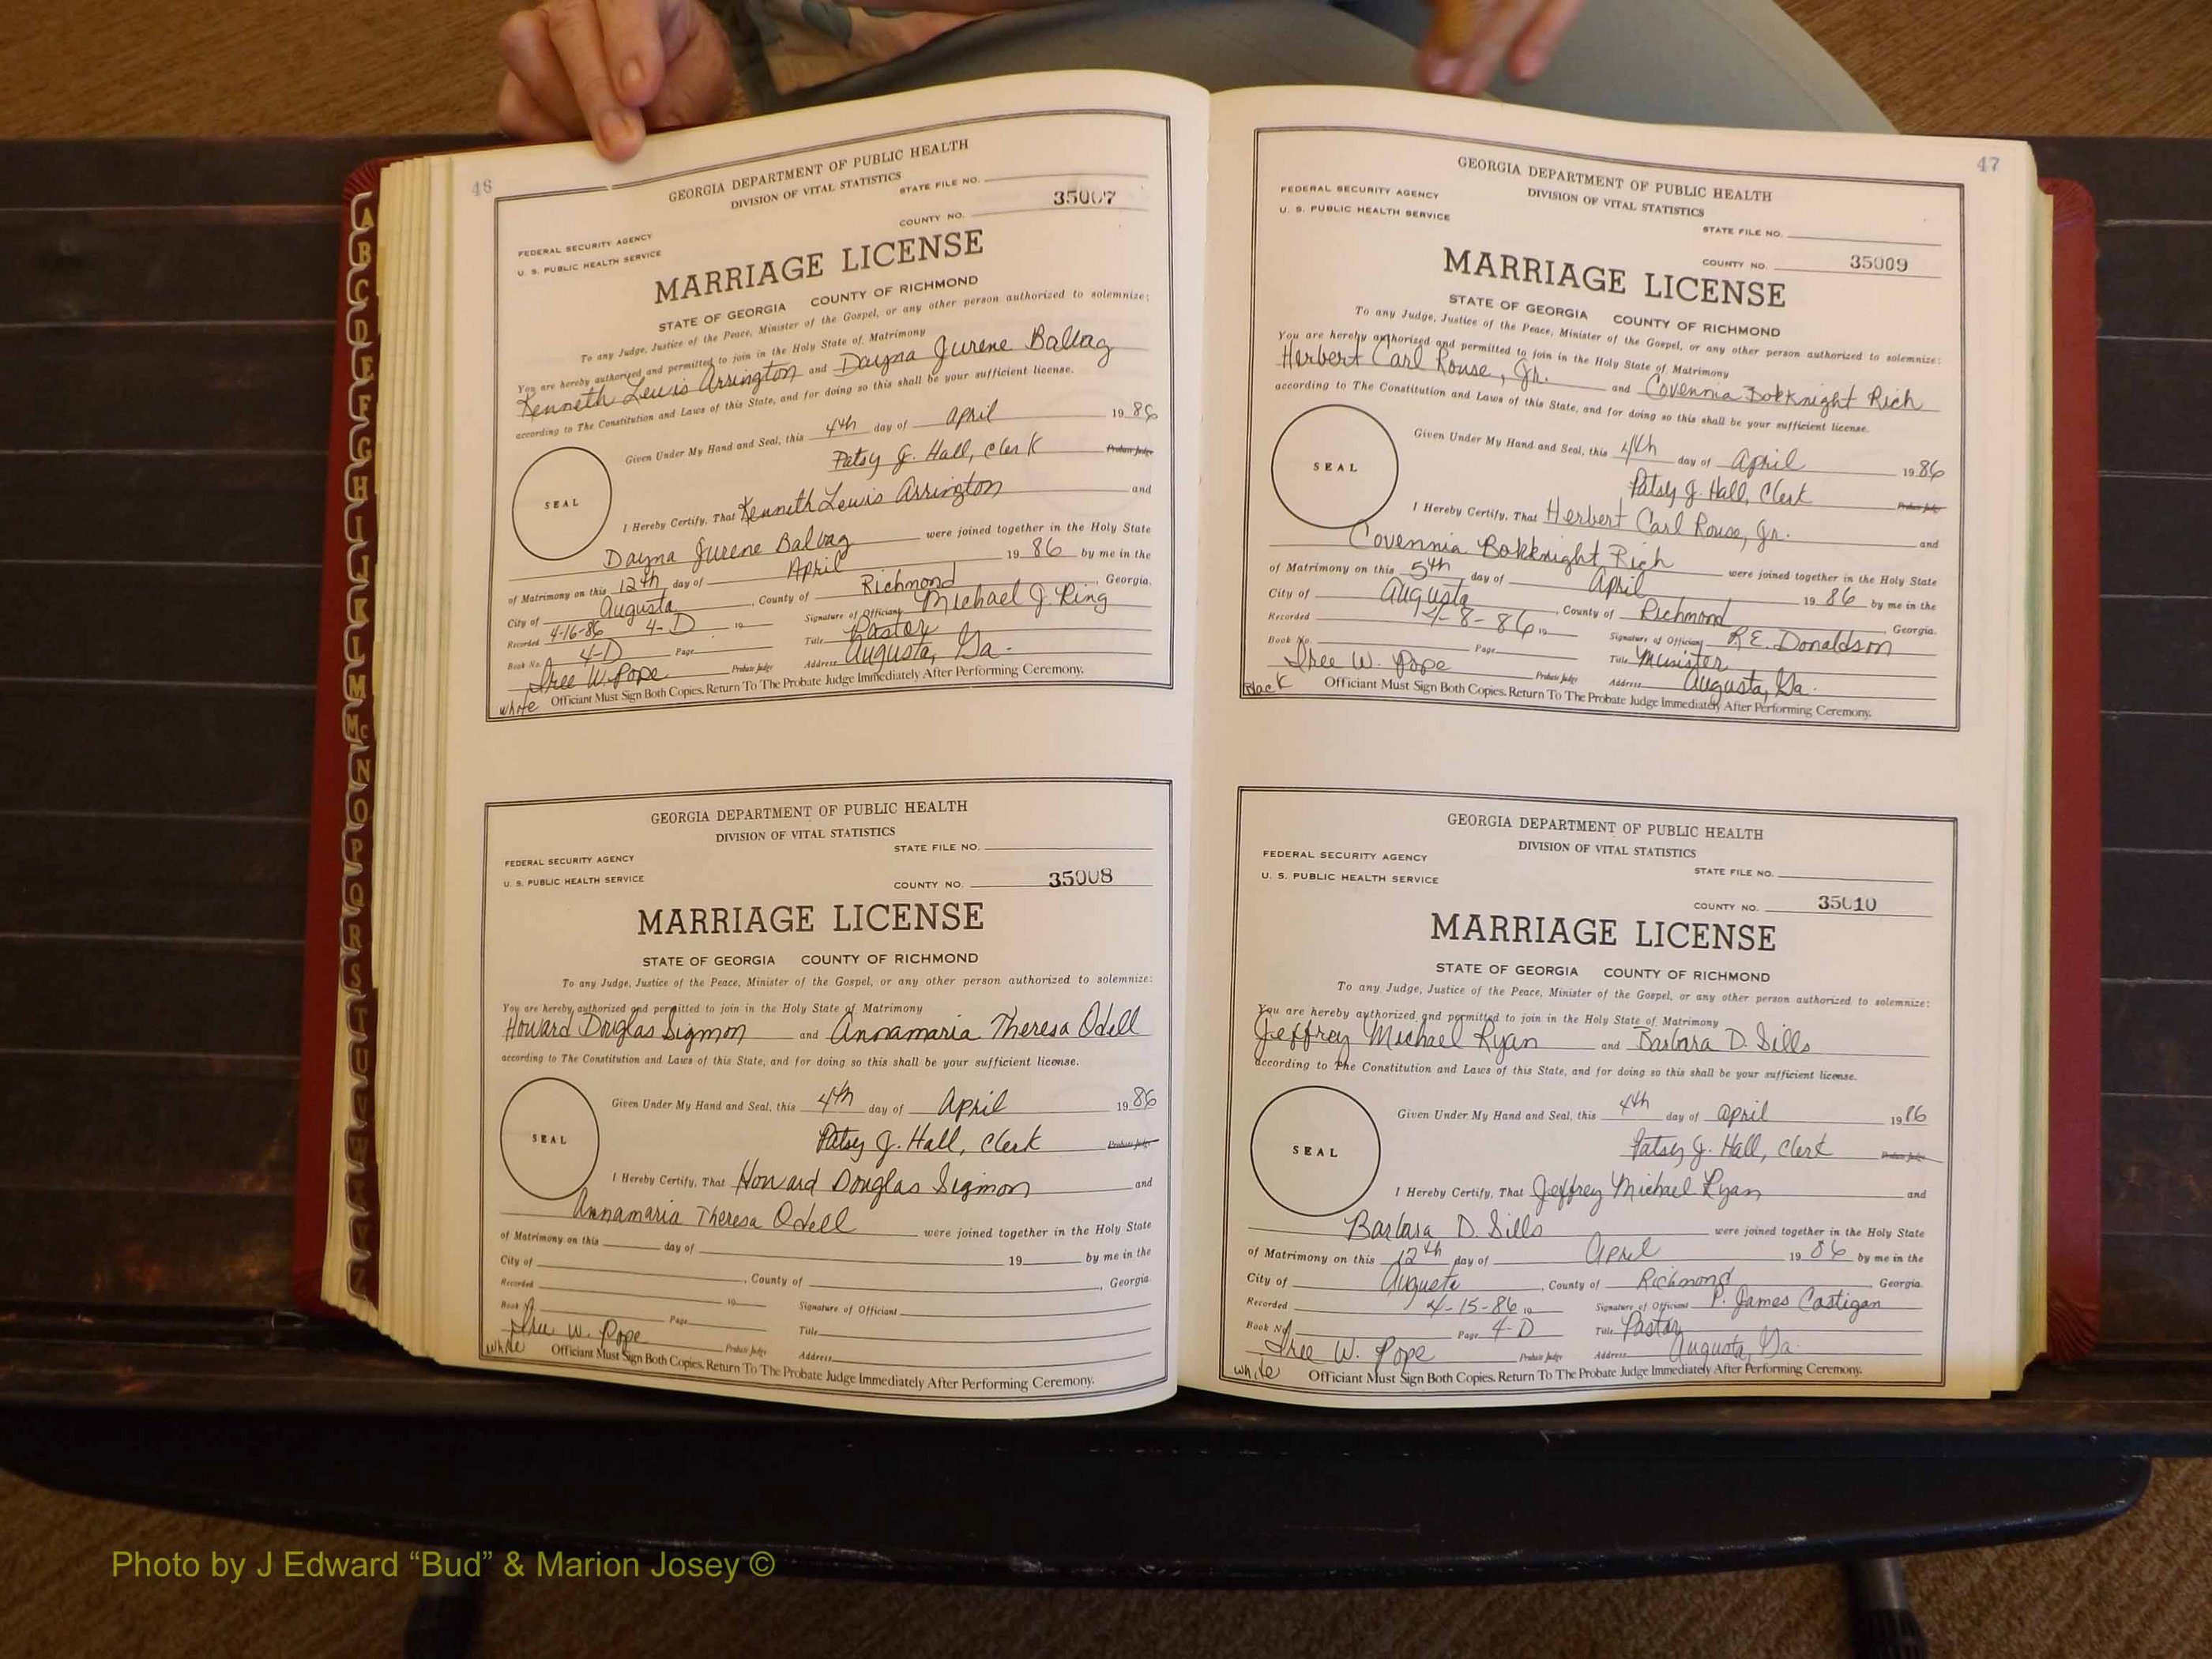 46
GEORGIA DEPARTMENT OF PUBLIC HEALTH
DIVISION OF VITAL STATISTICS
STATE FILE NO.
FEDERAL SECURITY AGENCY
U. S. PUBLIC HEALTH SERVICE
COUNTY NO. 35007
MARRIAGE LICENSE
STATE OF GEORGIA COUNTY OF RICHMOND
To any Judge, Justice of the Peace, Minister of the Gospel, or any other person authorized to solemnize:
You are hereby authorized and permitted to join in the Holy State of Matrimony
Kenneth Lewis Arrington and Dayna Jurene
according to The Constitution and Laws of this State, and for doing so this shall be your sufficient license.
Given Under My Hand and Seal, this 4th day of April 1986
Patsy J. Hall, Clerk Probate Judge
SEAL
I Hereby Certify, That Kenneth Lewis Arrington and
Dayna Jurene were joined together in the Holy State
of Matrimony on this 12th day of April 1986 by me in the
City of Augusta, County of Richmond, Georgia.
Recorded 4-16-86 4-D 19 Signature of Officiant Michael J. Ring
Book No. 4-D Page Title Pastor
W. Pope Probate Judge Address Augusta, Ga.
white Officiant Must Sign Both Copies. Return To The Probate Judge Immediately After Performing Ceremony.
GEORGIA DEPARTMENT OF PUBLIC HEALTH
DIVISION OF VITAL STATISTICS
STATE FILE NO.
FEDERAL SECURITY AGENCY
U. S. PUBLIC HEALTH SERVICE
COUNTY NO. 35008
MARRIAGE LICENSE
STATE OF GEORGIA COUNTY OF RICHMOND
To any Judge, Justice of the Peace, Minister of the Gospel, or any other person authorized to solemnize:
You are hereby authorized and permitted to join in the Holy State of Matrimony
Howard Douglas Sigmon and Annamaria Theresa Odell
according to The Constitution and Laws of this State, and for doing so this shall be your sufficient license.
Given Under My Hand and Seal, this 4th day of April 1986
Patsy J. Hall, Clerk Probate Judge
SEAL
I Hereby Certify, That Howard Douglas Sigmon and
Annamaria Theresa Odell were joined together in the Holy State
of Matrimony on this day of 19 by me in the
City of , County of , Georgia.
Recorded 19 Signature of Officiant
Book N Page Title
W. Pope Probate Judge Address
white Officiant Must Sign Both Copies. Return To The Probate Judge Immediately After Performing Ceremony.
47
GEORGIA DEPARTMENT OF PUBLIC HEALTH
DIVISION OF VITAL STATISTICS
FEDERAL SECURITY AGENCY
U. S. PUBLIC HEALTH SERVICE
STATE FILE NO.
COUNTY NO. 35009
MARRIAGE LICENSE
STATE OF GEORGIA COUNTY OF RICHMOND
To any Judge, Justice of the Peace, Minister of the Gospel, or any other person authorized to solemnize:
You are hereby authorized and permitted to join in the Holy State of Matrimony
Herbert Carl Rouse, Jr. and Covennia Rich
according to The Constitution and Laws of this State, and for doing so this shall be your sufficient license.
Given Under My Hand and Seal, this 4th day of April 1986
Patsy J. Hall, Clerk Probate Judge
SEAL
I Hereby Certify, That Herbert Carl Rouse, Jr. and
Covennia Rich were joined together in the Holy State
of Matrimony on this 5th day of April 1986 by me in the
City of Augusta, County of Richmond Georgia.
Recorded 4-8-86 19 Signature of Officiant R.E. Donaldson
Book No. Page Title Minister
W. Pope Probate Judge Address Augusta, Ga.
Black Officiant Must Sign Both Copies. Return To The Probate Judge Immediately After Performing Ceremony.
GEORGIA DEPARTMENT OF PUBLIC HEALTH
DIVISION OF VITAL STATISTICS
FEDERAL SECURITY AGENCY
U. S. PUBLIC HEALTH SERVICE
STATE FILE NO.
COUNTY NO. 35010
MARRIAGE LICENSE
STATE OF GEORGIA COUNTY OF RICHMOND
To any Judge, Justice of the Peace, Minister of the Gospel, or any other person authorized to solemnize:
You are hereby authorized and permitted to join in the Holy State of Matrimony
Jeffrey Michael Ryan and Barbara D. Sills
according to The Constitution and Laws of this State, and for doing so this shall be your sufficient license.
Given Under My Hand and Seal, this 4th day of April 1986
Patsy J. Hall, Clerk Probate Judge
SEAL
I Hereby Certify, That Jeffrey Michael Ryan and
Barbara D. Sills were joined together in the Holy State
of Matrimony on this 12th day of April 1986 by me in the
City of Augusta, County of Richmond, Georgia.
Recorded 4-15-86 19 Signature of Officiant P. James Castigan
Book No. Page 4-D Title Pastor
W. Pope Probate Judge Address Augusta, Ga.
white Officiant Must Sign Both Copies. Return To The Probate Judge Immediately After Performing Ceremony.
A
B
C
D
E
F
G
H
I
J
K
L
M
Mc
N
O
P
Q
R
S
T
U
V
W
Photo by J Edward “Bud” & Marion Josey ©